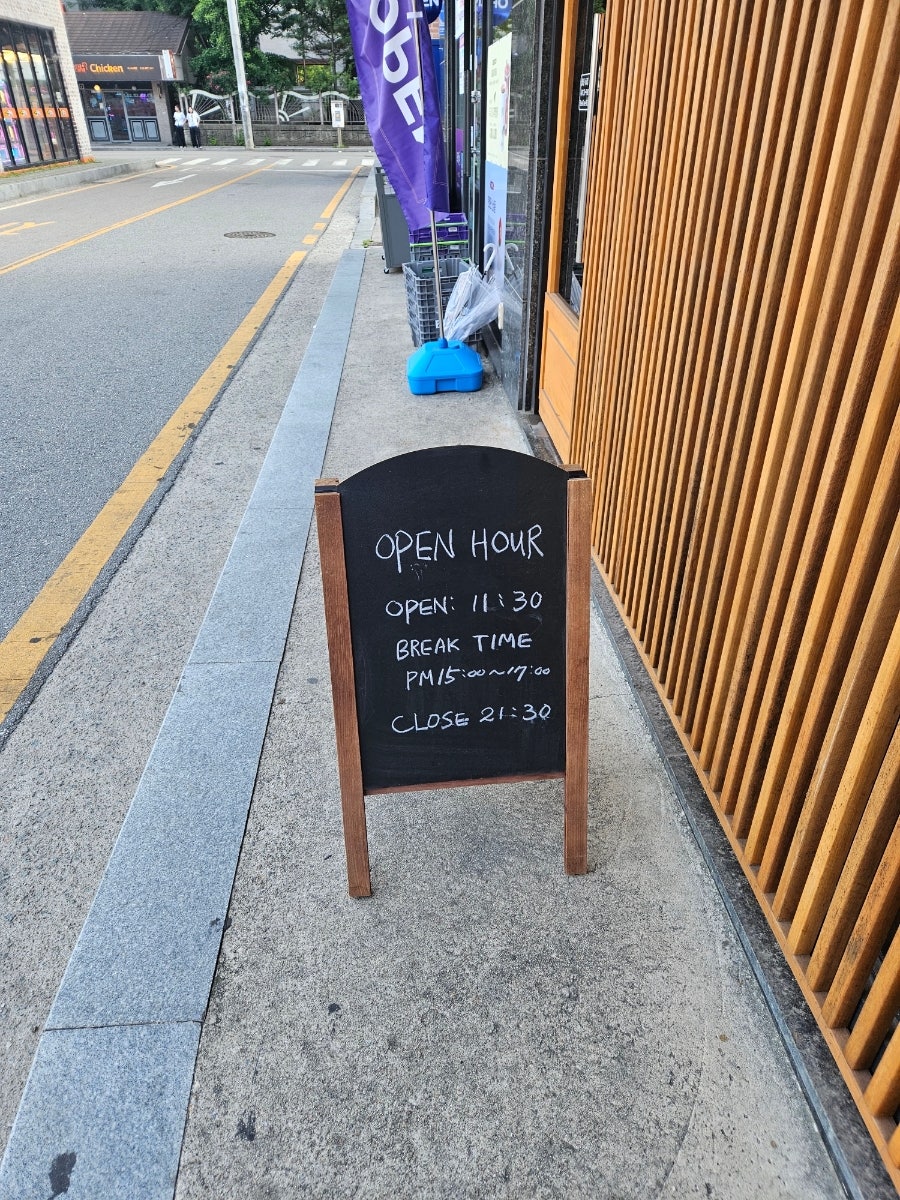 Chicken
OPEN
OPEN HOUR
OPEN: 11:30
BREAK TIME
PM15:00~17:00
CLOSE 21:30